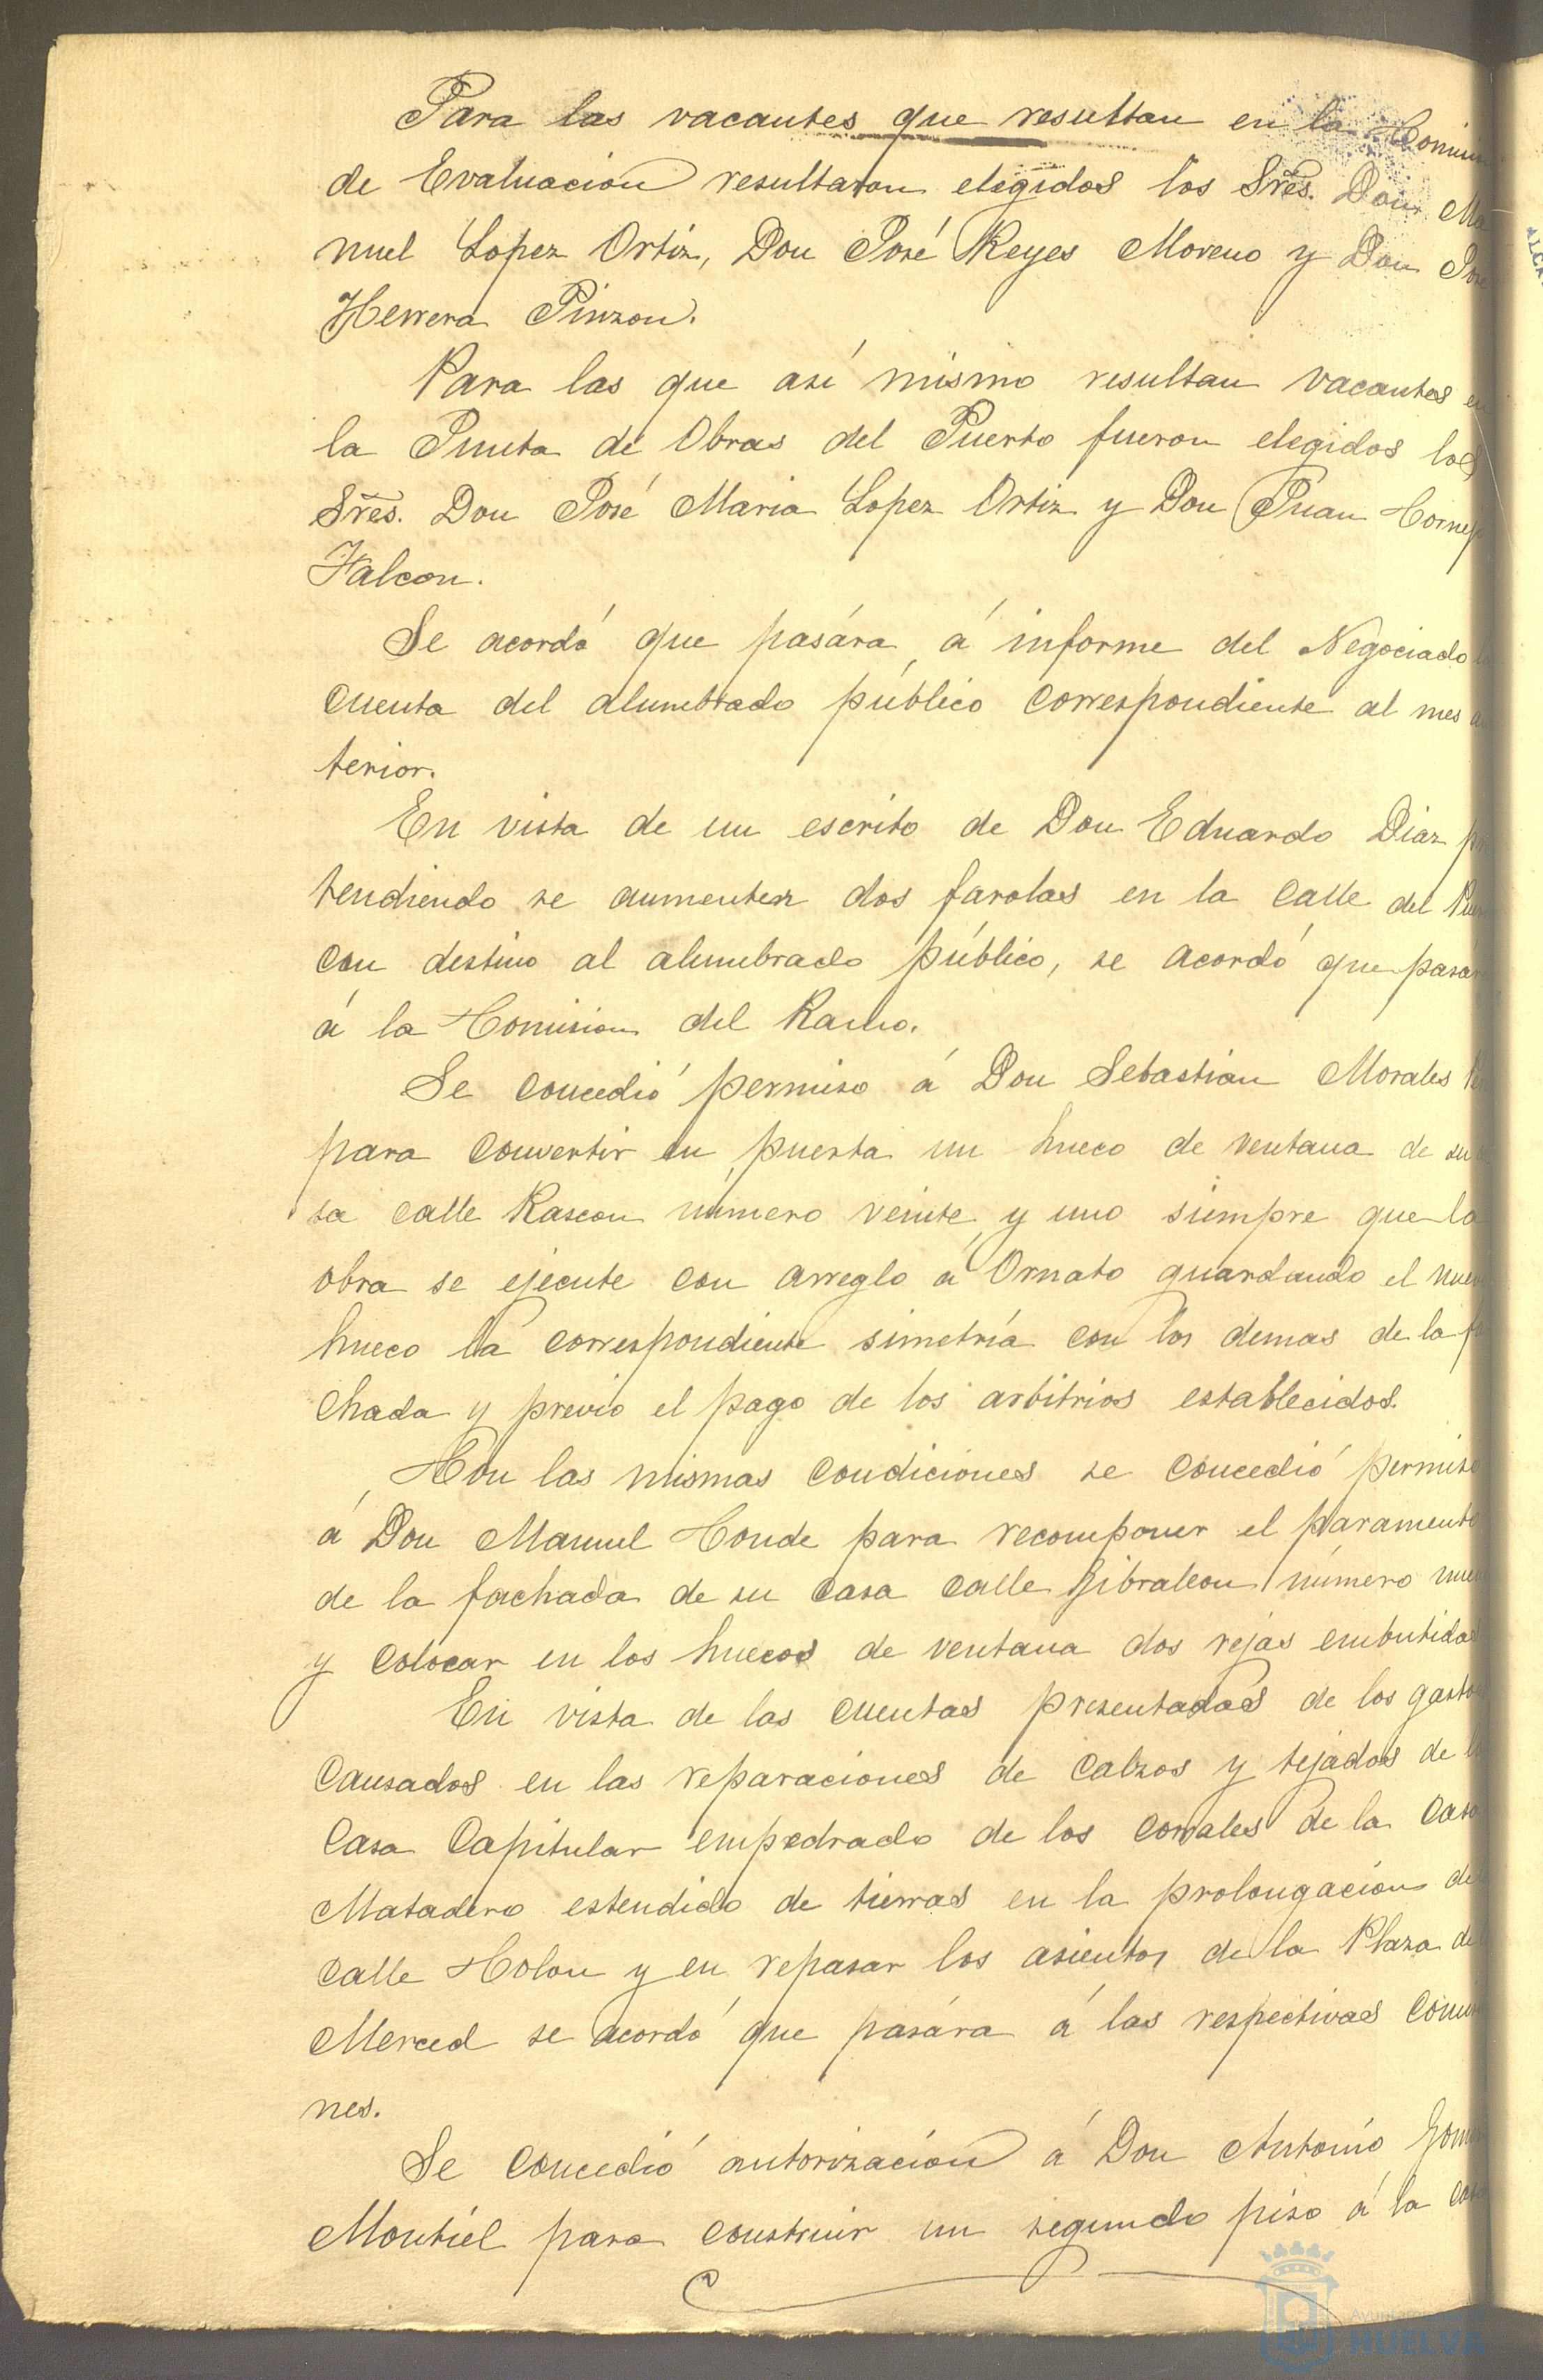 Para las vacantes que resultan en la Comisi
de Evaluacion resultaron elegidos los Sres. Don Ma
nuel Lopez Ortiz, Don José Reyes Moreno y Don José
Herrera Pinzon.
Para las que asi mismo resultan vacantes en
la Junta de Obras del Puerto fueron elegidos los
Sres. Don José Maria Lopez Ortiz y Don Juan Cornej
Falcon.
Se acordó que pasára á informe del Negociado la
cuenta del alumbrado público correspondiente al mes an
terior.
En vista de un escrito de Don Eduardo Diaz pre
tendiendo se aumenten dos farolas en la calle del Puer
con destino al alumbrado público, se acordó que pasár
á la Comision del Ramo.
Se concedió permiso á Don Sebastian Morales
para convertir en puerta un hueco de ventana de su ca
sa calle Rascon número veinte y uno siempre que la
obra se ejecute con arreglo á Ornato guardando el nuev
hueco la correspondiente simetría con los demas de la fa
chada y previo el pago de los arbitrios establecidos.
Con las mismas condiciones se concedió permiso
á Don Manuel Conde para recomponer el paramento
de la fachada de su casa calle Gibraleon número nue
y colocar en los huecos de ventana dos rejas embutidas
En vista de las cuentas presentadas de los gastos
causados en las reparaciones de calzos y tejados de la
Casa Capitular empedrado de los corrales de la Casa
Matadero estendido de tierras en la prolongacion de
calle Colon y en repasar los asientos de la Plaza de
Merced se acordó que pasára á las respectivas Comisi
nes.
Se concedió autorizacion á Don Antonio Gome
Montiel para construir un segundo piso á la casa
HUELVA